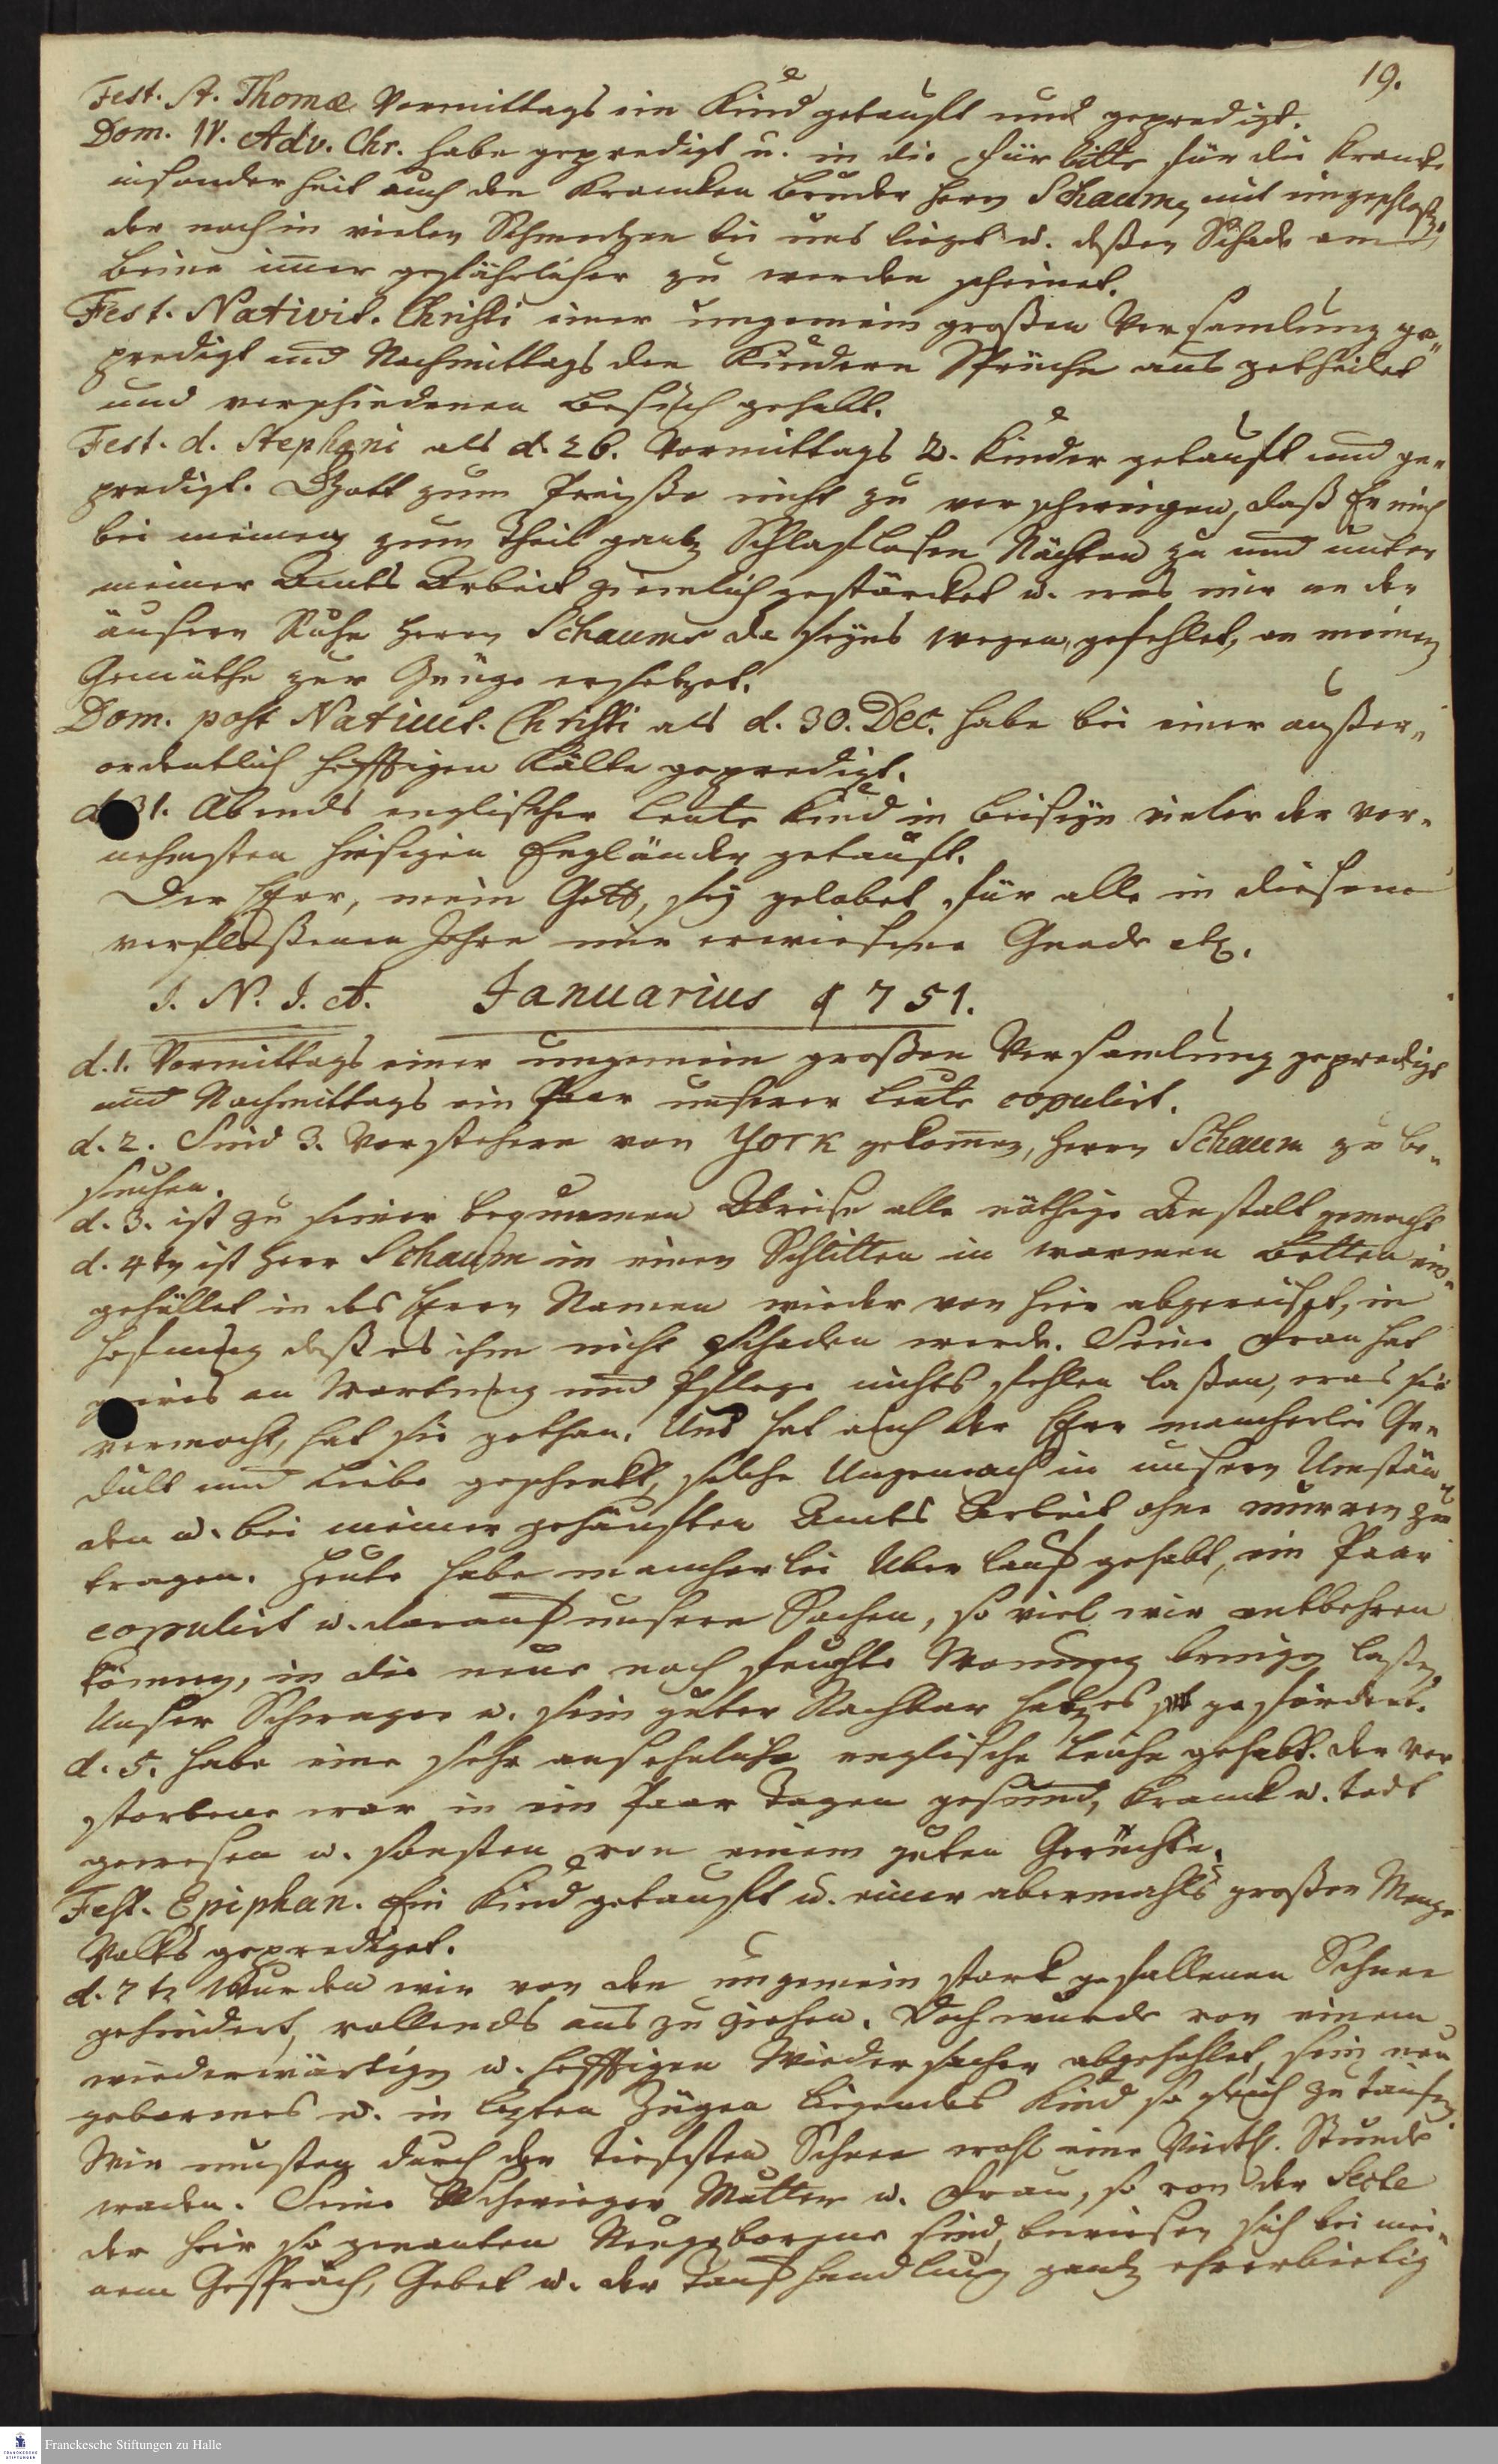 19.
Fest. St. Thomæ Vormittags ein Kind getauft und gepredigt.
Dom. IV. Adv. Chr. habe gepredigt u. in die Fürbitte für die Krancke
insonderheit auch den Krancken Bruder Herrn Schaum mit eingeschloßen,
der noch in vielen Schmertzen bei uns lieget u. deßen Schade am
Beine im̅er gefährlicher zu werden scheinet.
Fest. Nativit. Christi einer ungemein großen Versamlung ge„
predigt und Nachmittags den Kindern Sprüche aus getheilet
und verschiedenen Besuch gehabt.
Fest. d. Stephani als d. 26. Vormittags 2. Kinder getauft und ge„
predigt. Gott zum Preiße nicht zu verschweigen, daß Er mich
bei meinen zum Theil gantz Schlaflosen Nächten zu und unter
meiner Amts Arbeit ziemlich gestärcket u. was mir an der
äusern Ruhe Herrn Schaums da seyns wegen, gefehlet, an meinem
Gemüthe zur Gnüge ersetzet.
Dom. post Nativit. Christi als d. 30. Dec. habe bei einer außer„
ordentlich hefftigen Kälte gepredigt.
d. 31. Abends englischer Leute Kind in Beiseyn vieler der vor„
nehmsten hiesigen Engländer getauft.
Der Herr, mein Gott, sey gelobet für alle in diesem
verfloßenen Jahre mir erwiesene Gnade etc.
I. N. J. A. Januarius 1751.
d. 1. Vormittags einer ungemein großen Versamlung gepredigt
und Nachmittags ein Paar unserer Leute copulirt.
d. 2. Sind 3. Vorstehern von York gekom̅en, Herrn Schaum zu be„
suchen.
d. 3. ist zu seiner bequemen Abreise alle nöthige Anstalt gemacht
d. 4tn ist Herr Schaum in einem Schlitten in warmen Betten ein„
gehüllet in des Herrn Namen wieder von hier abgereiset, in
Hofnung daß es ihm nicht schaden werde. Seine Frau hat
an Wartung und Pflege nichts fehlen laßen, was sie
vermocht, hat sie gethan. Uns hat auch der Herr mancherlei Ge„
dult und Liebe geschenkt, solche Ungemach in unsern Umstän„
den u. bei meiner gehäuften Amts Arbeit ohne murren zu
tragen. Heute habe mancherlei Uberlauf gehabt, ein Paar
copulirt u. darauf unsere Sachen, so viel wir entbehren
können, in die neue noch feuchte Wonung bringen laßen.
Unser Schwager u. sein guter Nachbar haben es gefördert.
d. 5. habe eine sehr ansehnliche englische Leiche gehabt. Der ver
storbene war in ein Paar Tagen gesund, kranck u. todt
gewesen u. sonsten von einem guten Gerüchte.
Fest. Epiphan. Ein Kind getauft u. einer abermahls großen Menge
Volks geprediget.
d. 7tn Wurden wir von den ungemein stark gefallenen Schnee
gehindert, vollends aus zu ziehen. Doch wurde von einem
wiederwärtigen u. hefftigen Wiedersacher abgehohlet, sein neu
gebornes u. in lezten Zügen liegendes Kind so gleich zu taufen.
Wir musten durch den tiefsten Schnee wohl eine Viertl. Stunde
waden. Seine Schwieger Mutter u. Frau, so von der Secte
der hier so genanten Neugeborene sind, bewiesen sich bei mei„
nem Gespräch, Gebet u. der Tauf handlung gantz ehrerbietig
Franckesche Stiftungen zu Halle